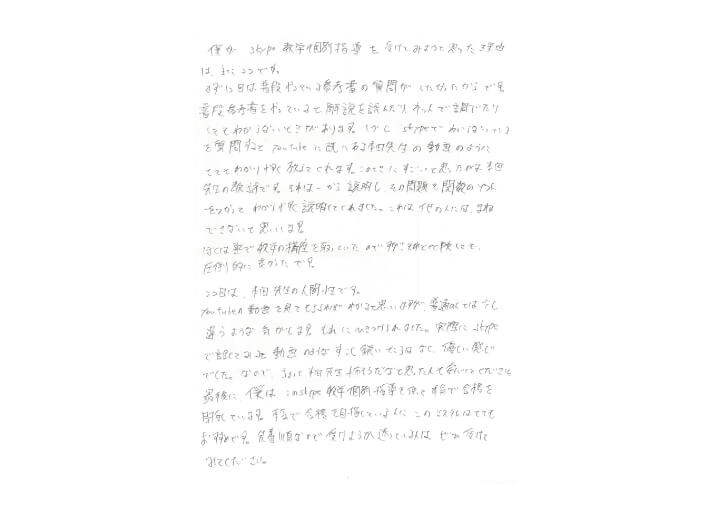 僕が skype 数学個別指導を受けてみようと思った理由
は、主に二つです。
まず1つ目は普段やっている参考書の質問がしたかったからです。
普段参考書をやっていると解説を読んだり、ネットで調べたり
してもわからないときがあります。しかし skypeで わからないところ
を質問すると YouTube に既にある本田先生の動画のように
とてもわかりやすく教えてくれます。このときにすごいと思ったのが本田
先生の数学です。それは一から説明し、その問題を関数のソフト
をつかって わかりやすく説明してくれました。これは他の人にはまね
できないと思います。
ぼくは塾で数学の講座を取っていたので
圧倒的に良かったです。
二つ目は、本田先生の人間性です。
YouTubeの動画を見てもらえればわかると思いますが、普通の人とは少し
違うような気がします。それにひきつけられました。実際に skype
で話してみると 動画のような すこし鋭いところはなく、優しい感じ
でした。なので、
最後に、僕はこのskype 数学個別指導を使って 本気で合格を
目指しています。本気で合格を目指している人に このシステムはとても
おすすめです。先着順なので受けようか迷っている人は、ぜひ受けて
みてください。